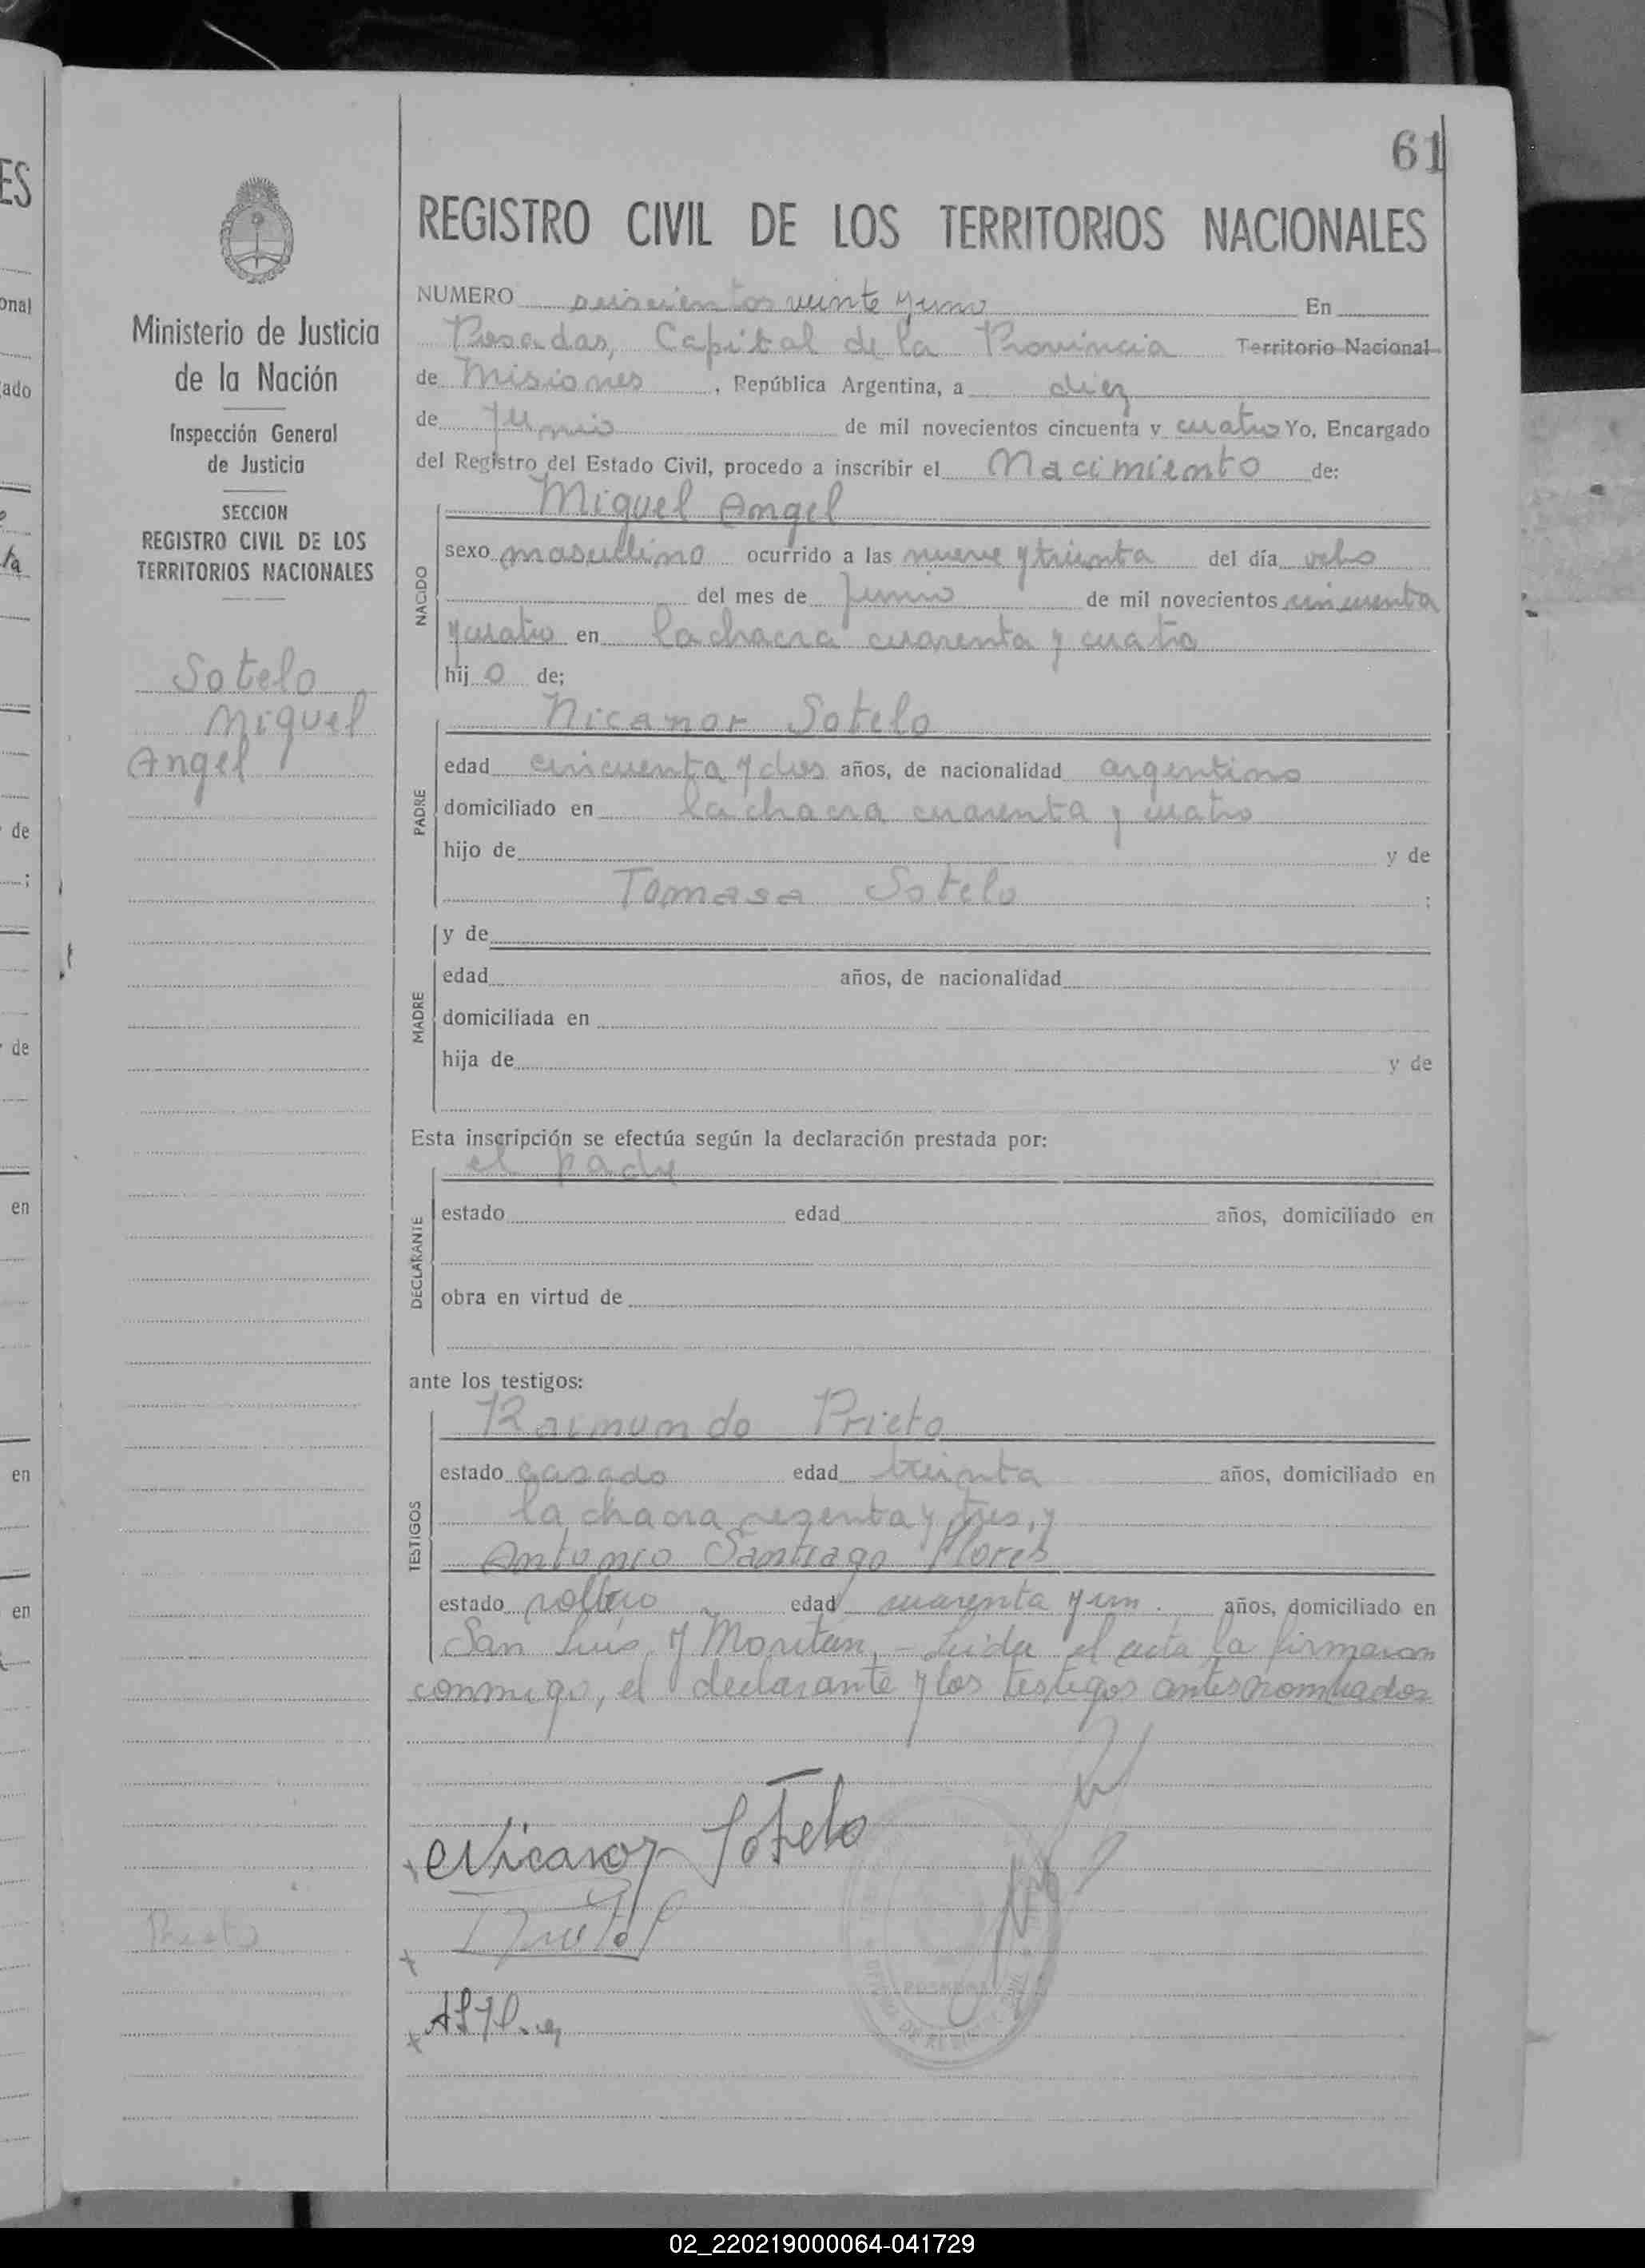 61
REGISTRO CIVIL DE LOS TERRITORIOS NACIONALES
Ministerio de Justicia
de la Nación
Inspección General
de Justicia
SECCION
REGISTRO CIVIL DE LOS
TERRITORIOS NACIONALES
Sotelo
Miguel
Angel
NUMERO seiscientos veinte y uno En
Posadas, Capital de la Provincia Territorio Nacional
de Misiones, República Argentina, a diez
de Junio de mil novecientos cincuenta y cuatro Yo, Encargado
del Registro del Estado Civil, procedo a inscribir el Nacimiento de:
NACIDO
Miguel Angel
sexo masculino ocurrido a las nueve y treinta del día ocho
del mes de Junio de mil novecientos cincuenta
y cuatro en la chacra cuarenta y cuatro
hijo de:
PADRE
Nicanor Sotelo
edad cincuenta y dos años, de nacionalidad argentino
domiciliado en la chacra cuarenta y cuatro
hijo de y de
Tomasa Sotelo ;
MADRE
y de
edad años, de nacionalidad
domiciliada en
hija de y de
Esta inscripción se efectúa según la declaración prestada por:
DECLARANTE
el padre
estado edad años, domiciliado en
obra en virtud de
ante los testigos:
TESTIGOS
Raimundo Prieto
estado casado edad treinta años, domiciliado en
la chacra sesenta y tres, y
Antonio Santiago Flores
estado soltero edad cuarenta y un años, domiciliado en
San Luis y Moritan, - Leida el acta la firmaron
conmigo, el declarante y los testigos antes nombrados
Nicanor Sotelo
Prieto
02_220219000064-041729